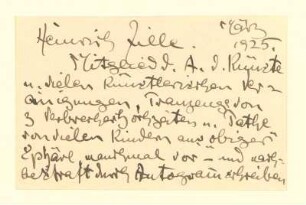 März
Heinrich Zille. 1925.
Mitglied d. A. d. Künste
u. vielen künstlerischen Ver=
einigungen, Trauzeuge von
3 Verbrecherhochzeiten u. Pathe
von vielen Kindern aus obiger
Sphäre, manchmal vor- und nach-
bestraft durch Autogramschreiben